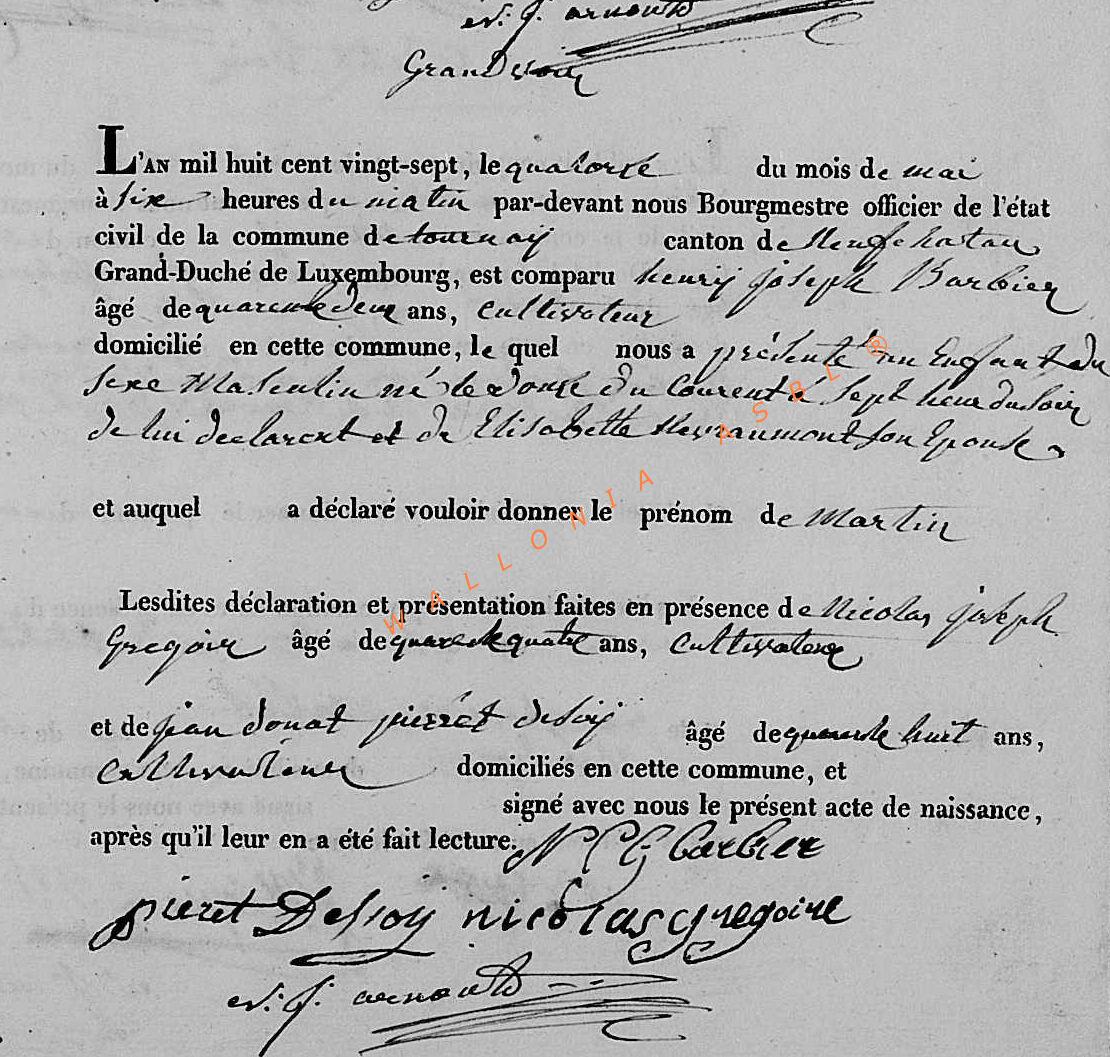 N. J. arnould
Grandsoir
L'AN mil huit cent vingt-sept, le quatorse du mois de mai
à sixe heures du matin par-devant nous Bourgmestre officier de l'état
civil de la commune de tournaÿ canton de Neufchatau
Grand-Duché de Luxembourg, est comparu henry joseph Barbier
âgé de quarente deux ans, Cultivateur
domicilié en cette commune, le quel nous a présenté un Enfant du
sexe Masculin né le douse du Courent à sept heur du soir
de lui declarent et de Elisabette son Epouse
et auquel a déclaré vouloir donner le prénom de Martin
Lesdites déclaration et présentation faites en présence de Nicolas joseph
Gregoire âgé de quarente quatre ans, Cultivateur
et de jean donat pierret desoiÿ âgé de quarente huit ans,
Cultivateur domiciliés en cette commune, et
signé avec nous le présent acte de naissance,
après qu'il leur en a été fait lecture. Barbier
pieret Dessoÿ nicolas gregoire
N. J. arnould
WALLONIA ASBL ®